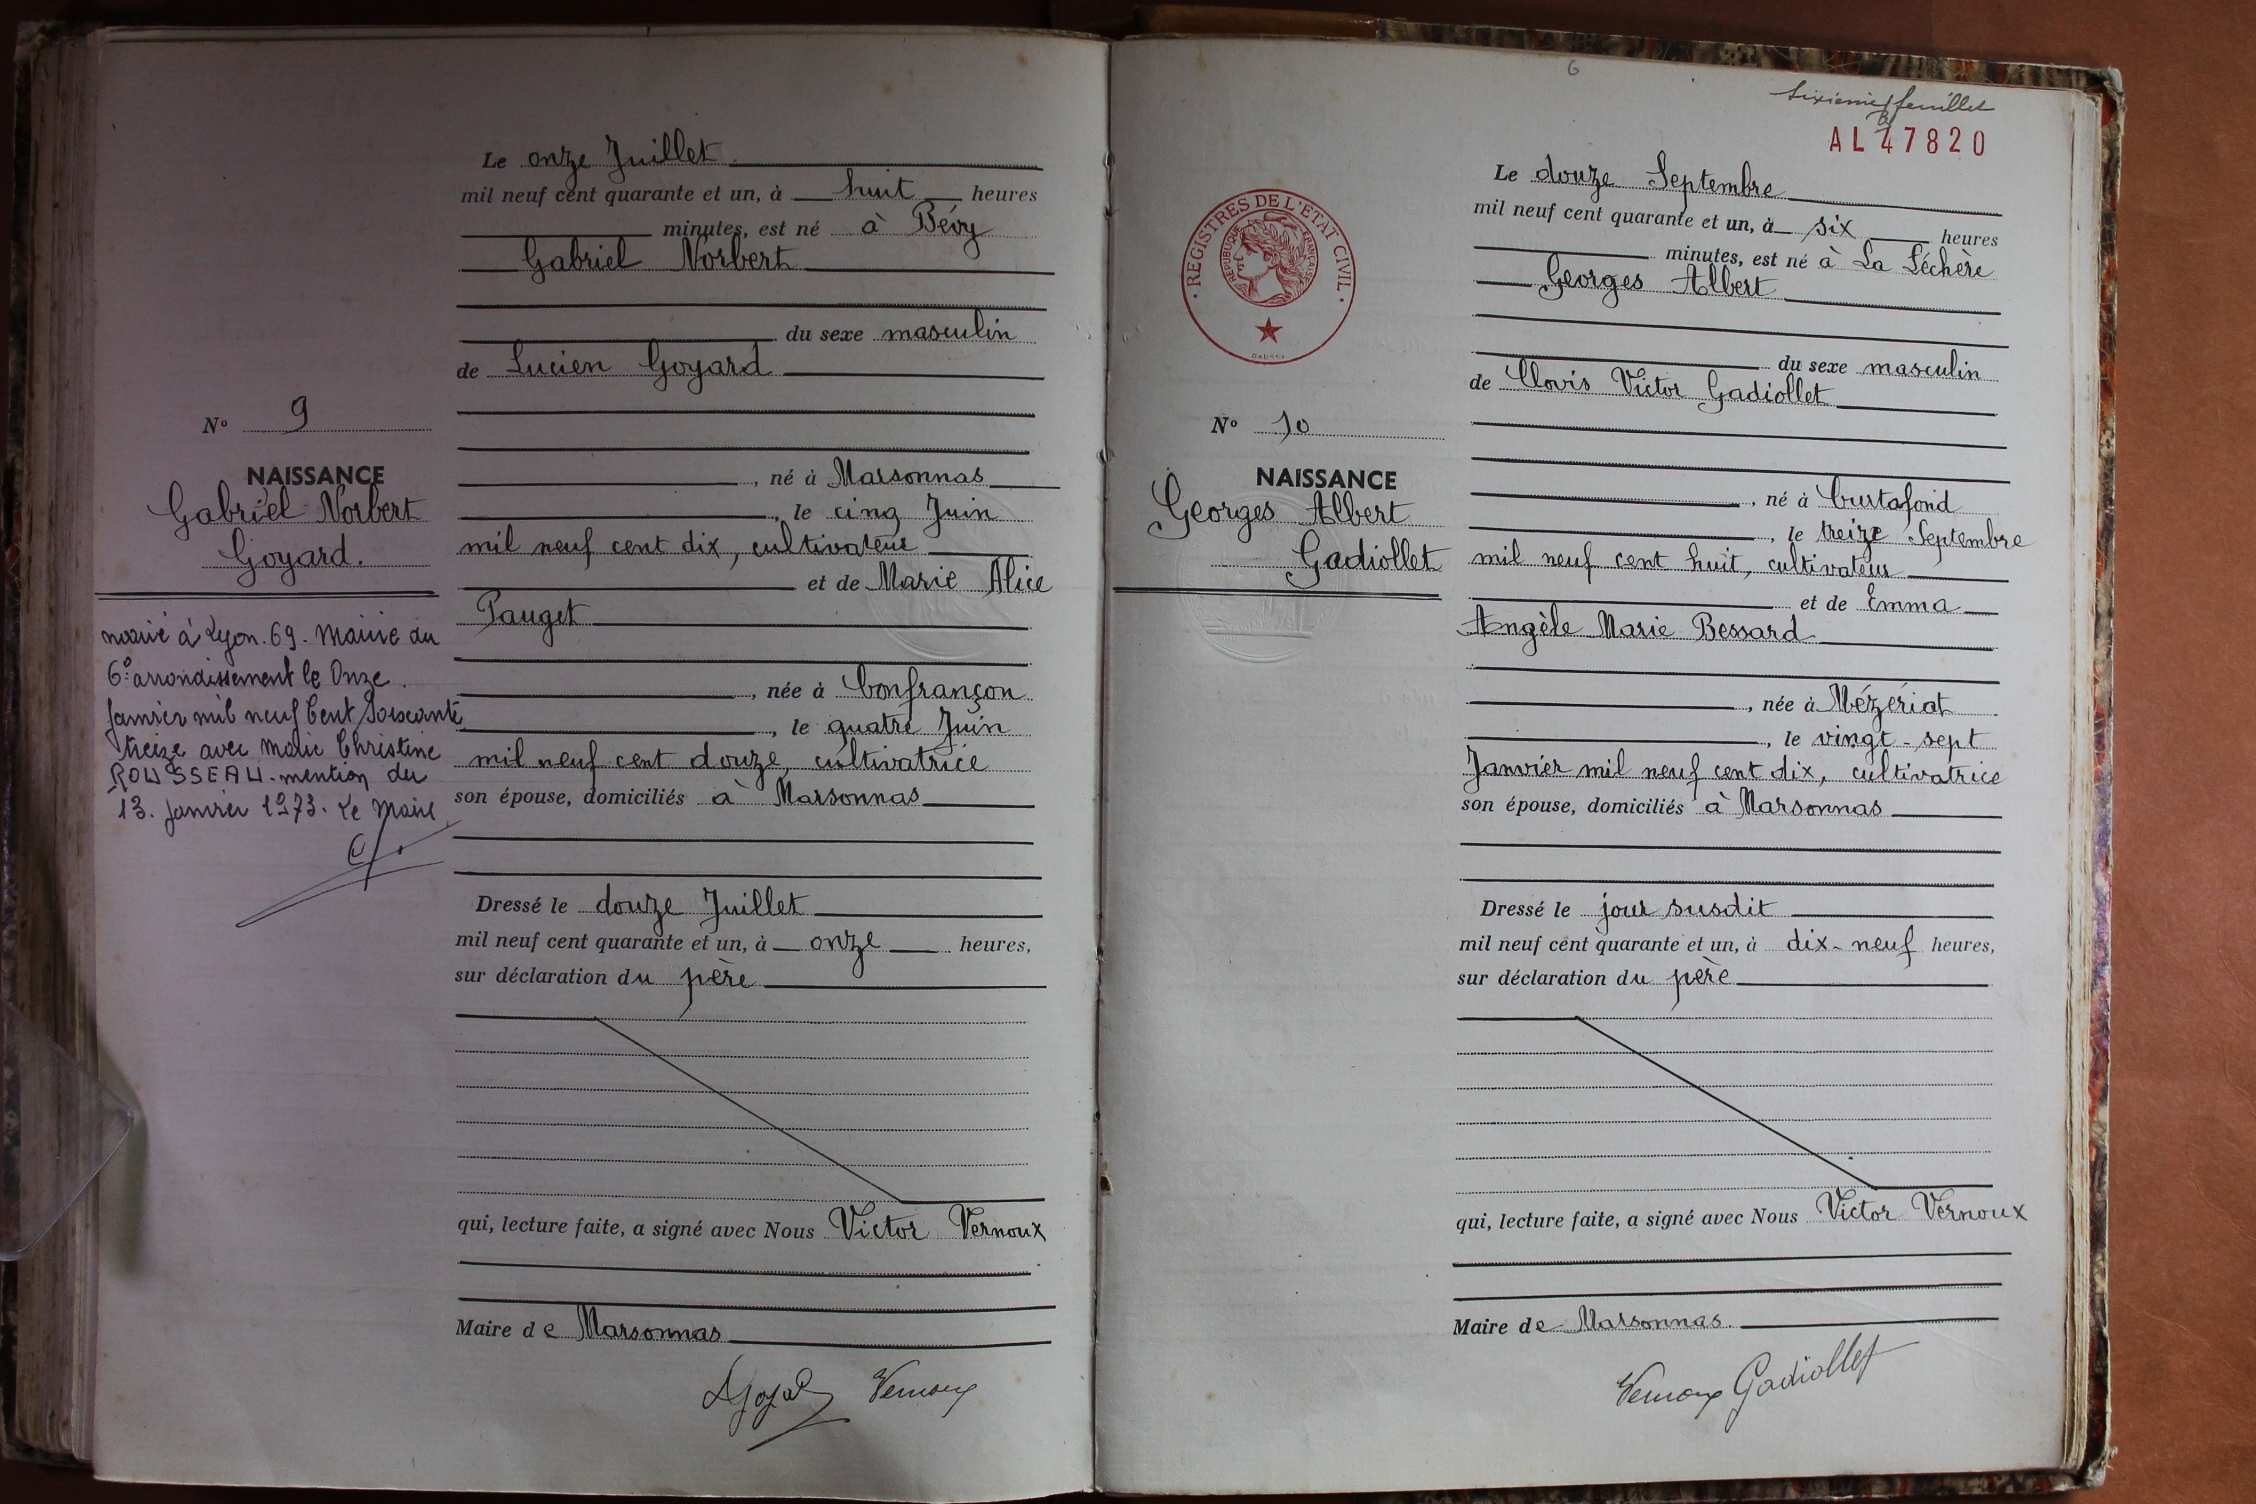 Le onze Juillet
mil neuf cent quarante et un, à huit heures
minutes, est né à Bévy
Gabriel Norbert
du sexe masculin
de Lucien Goyard
N° 9
NAISSANCE
Gabriel Norbert
Goyard.
, né à Marsonnas
, le cinq Juin
mil neuf cent dix, cultivateur
et de Marie Alice
Pauget
, née à Confrançon
, le quatre Juin
mil neuf cent douze, cultivatrice
son épouse, domiciliés à Marsonnas
marié à Lyon. 69. Mairie du
6° arrondissement le Onze
Janvier mil neuf Cent Soixante
treize avec Marie Christine
ROUSSEAU - mention du
13. Janvier 1973. Le Maire
Dressé le douze Juillet
mil neuf cent quarante et un, à onze heures,
sur déclaration du père
qui, lecture faite, a signé avec Nous Victor Vernoux
Maire de Marsonnas
Vernoux
6
Sixième feuillet
AL 47820
REGISTRES DE L'ETAT CIVIL
REPUBLIQUE FRANÇAISE
Le douze Septembre
mil neuf cent quarante et un, à six heures
minutes, est né à La Léchère
Georges Albert
du sexe masculin
de Clovis Victor Gadiollet
N° 10
NAISSANCE
Georges Albert
Gadiollet
, né à Curtafond
, le treize Septembre
mil neuf cent huit, cultivateur
et de Emma
Angèle Marie Bessard
, née à Mézériat
, le vingt-sept
Janvier mil neuf cent dix, cultivatrice
son épouse, domiciliés à Marsonnas
Dressé le jour susdit
mil neuf cent quarante et un, à dix-neuf heures,
sur déclaration du père
qui, lecture faite, a signé avec Nous Victor Vernoux
Maire de Marsonnas
Vernoux Gadiollet